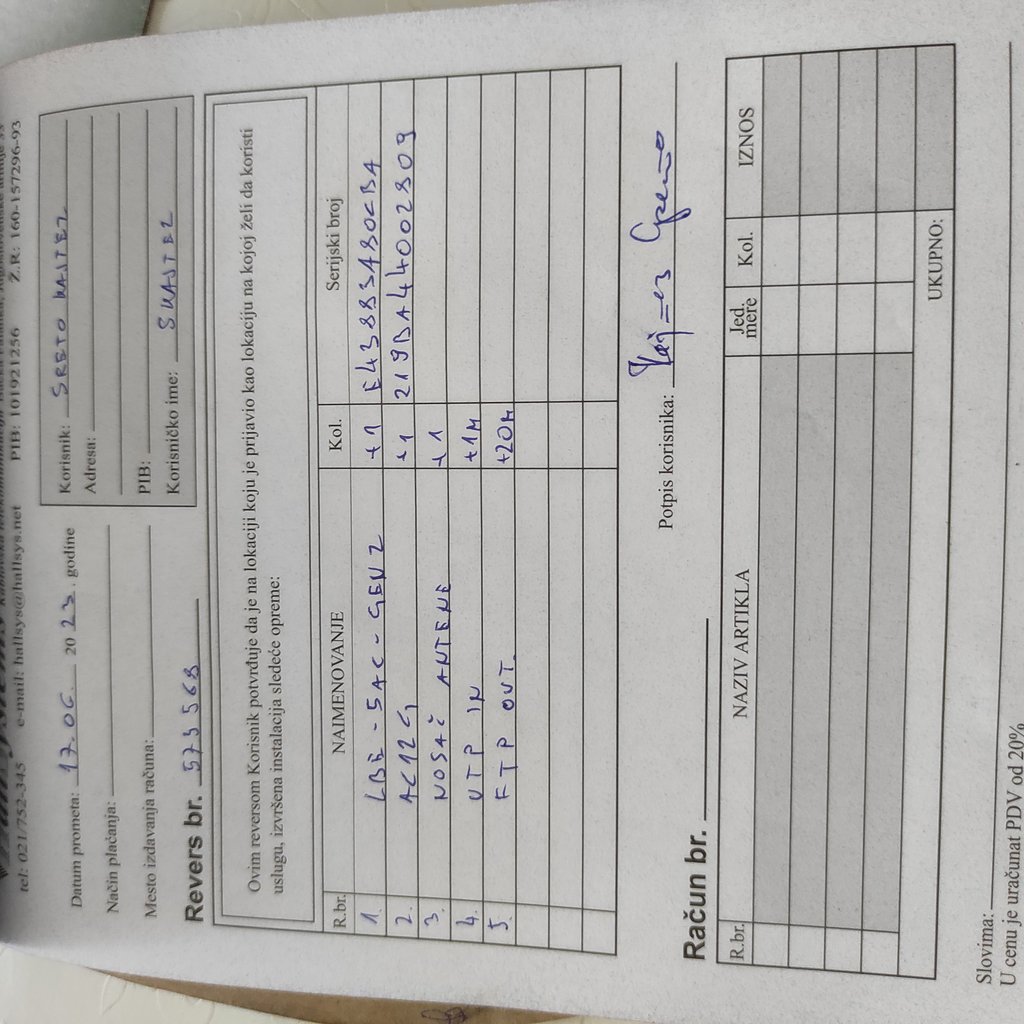 tel: 021/752-345 e-mail: hallsys@hallsys.net PIB: 101921256 Ž.R: 160-157296-93
Datum prometa: 17.06. 2023. godine
Način plaćanja:
Mesto izdavanja računa:
Korisnik: SRETO KAJTEZ
Adresa:
PIB:
Korisničko ime: SKAJTEZ
Revers br. 573568
Ovim reversom Korisnik potvrđuje da je na lokaciji koju je prijavio kao lokaciju na kojoj želi da koristi
uslugu, izvršena instalacija sledeće opreme:
R.br. NAIMENOVANJE Kol. Serijski broj
1. LBE-5AC-GEN2 +1 E43883A80CBA
2. AC12G +1 219BA44002809
3. NOSAČ ANTENE +1
4. UTP IN +1M
5. FTP OUT +20M
Potpis korisnika:
Račun br.
R.br. NAZIV ARTIKLA Jed. mere Kol. IZNOS
UKUPNO:
Slovima:
U cenu je uračunat PDV od 20%